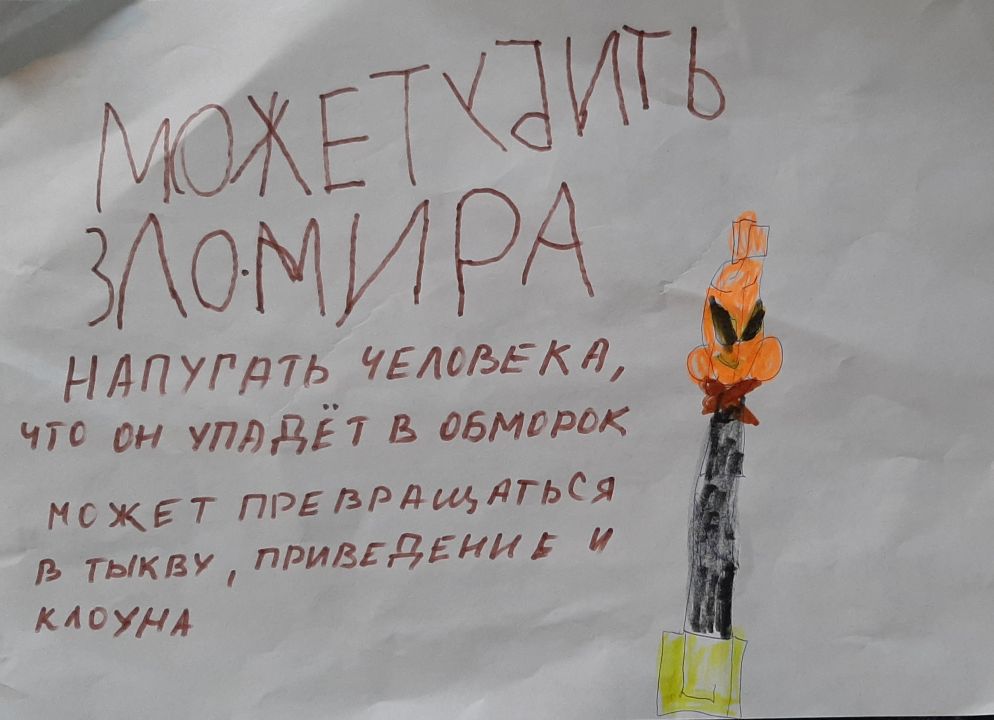 МОЖЕТ УБИТЬ
ЗЛО.МИРА
НАПУГАТЬ ЧЕЛОВЕКА,
ЧТО ОН УПАДЁТ В ОБМОРОК
МОЖЕТ ПРЕВРАЩАТЬСЯ
В ТЫКВУ, ПРИВЕДЕНИЕ И
КЛОУНА